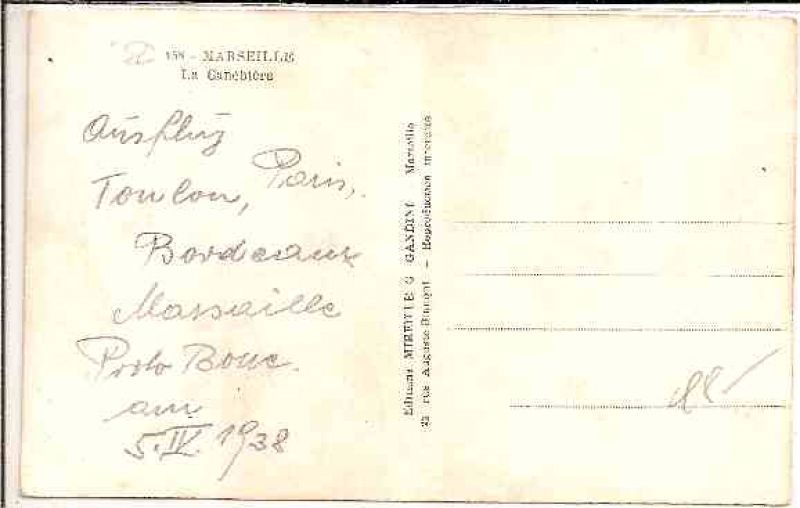 158 - MARSEILLE
La Canebière
Ausflug
Toulon, Paris,
Bordeaux
Marseille
Porto Bouc.
am
5.IV.1938
Editions MIREILLE G GANDINI - Marseille
rue Auguste - Reproduction interdite